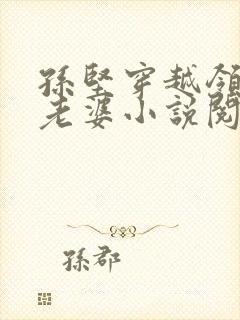 孫堅穿越領
老婆小說閱
孫郡